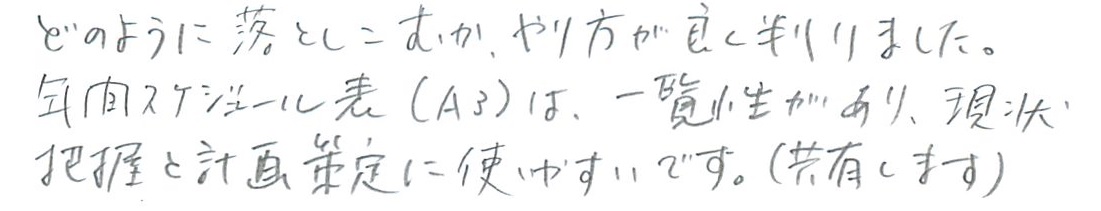 どのように落としこむか、やり方が良く判りました。
年間スケジュール表（A3）は、一覧性があり、現状
把握と計画策定に使いやすいです。（共有します）